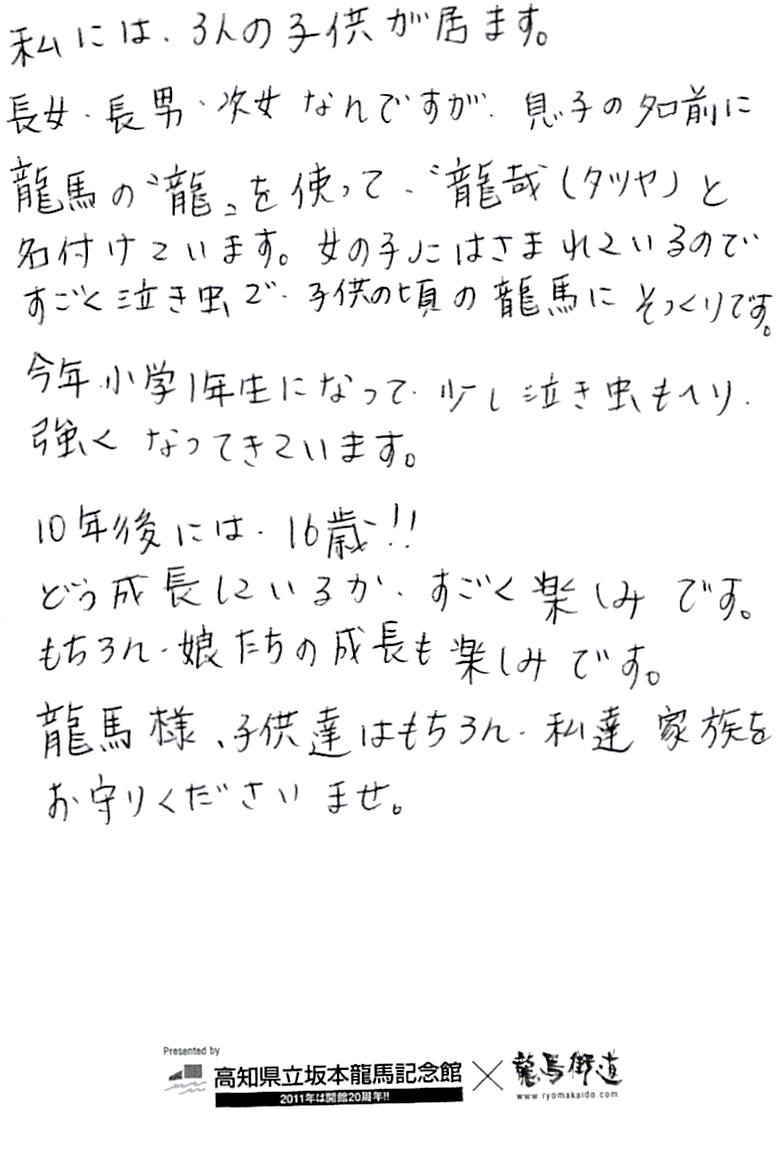 私には、3人の子供が居ます。
長女・長男・次女なんですが、息子の名前に
龍馬の〝龍〟を使って、〝龍哉(タツヤ)と
名付けています。女の子にはさまれているので
すごく泣き虫で、子供の頃の龍馬にそっくりです。
今年小学1年生になって、少し泣き虫もへり、
強くなってきています。
10年後には、16歳!!
どう成長しているか、すごく楽しみです。
もちろん、娘たちの成長も楽しみです。
龍馬様、子供達はもちろん、私達家族を
お守りくださいませ。
Presented by
高知県立坂本龍馬記念館×龍馬街道
2011年は開館20周年!!
www.ryomakaido.com